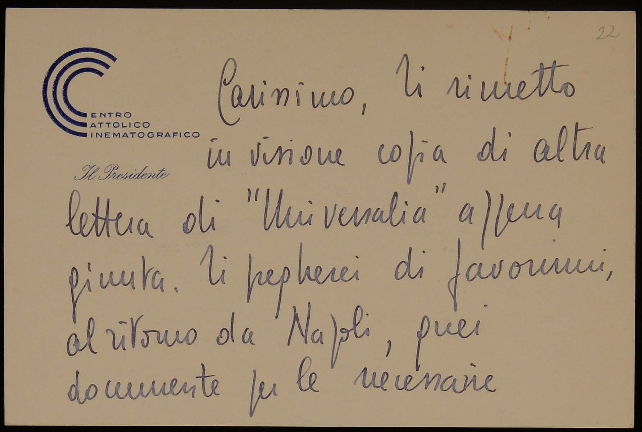 22
CENTRO
CATTOLICO
CINEMATOGRAFICO
Il Presidente
Carissimo, ti rimetto
in visione copia di altra
lettera di "Universalia" appena
giunta. Ti pregherei di favorirmi,
al ritorno da Napoli, quei
documenti per le necessarie